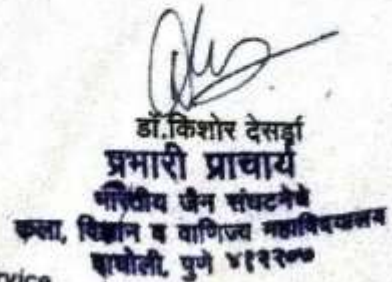 डॉ.किशोर देसर्डा
प्रभारी प्राचार्य
भारतीय जैन संघटनेचे
कला, विज्ञान व वाणिज्य महाविद्यालय
वाघोली, पुणे ४१२२०७
rvice